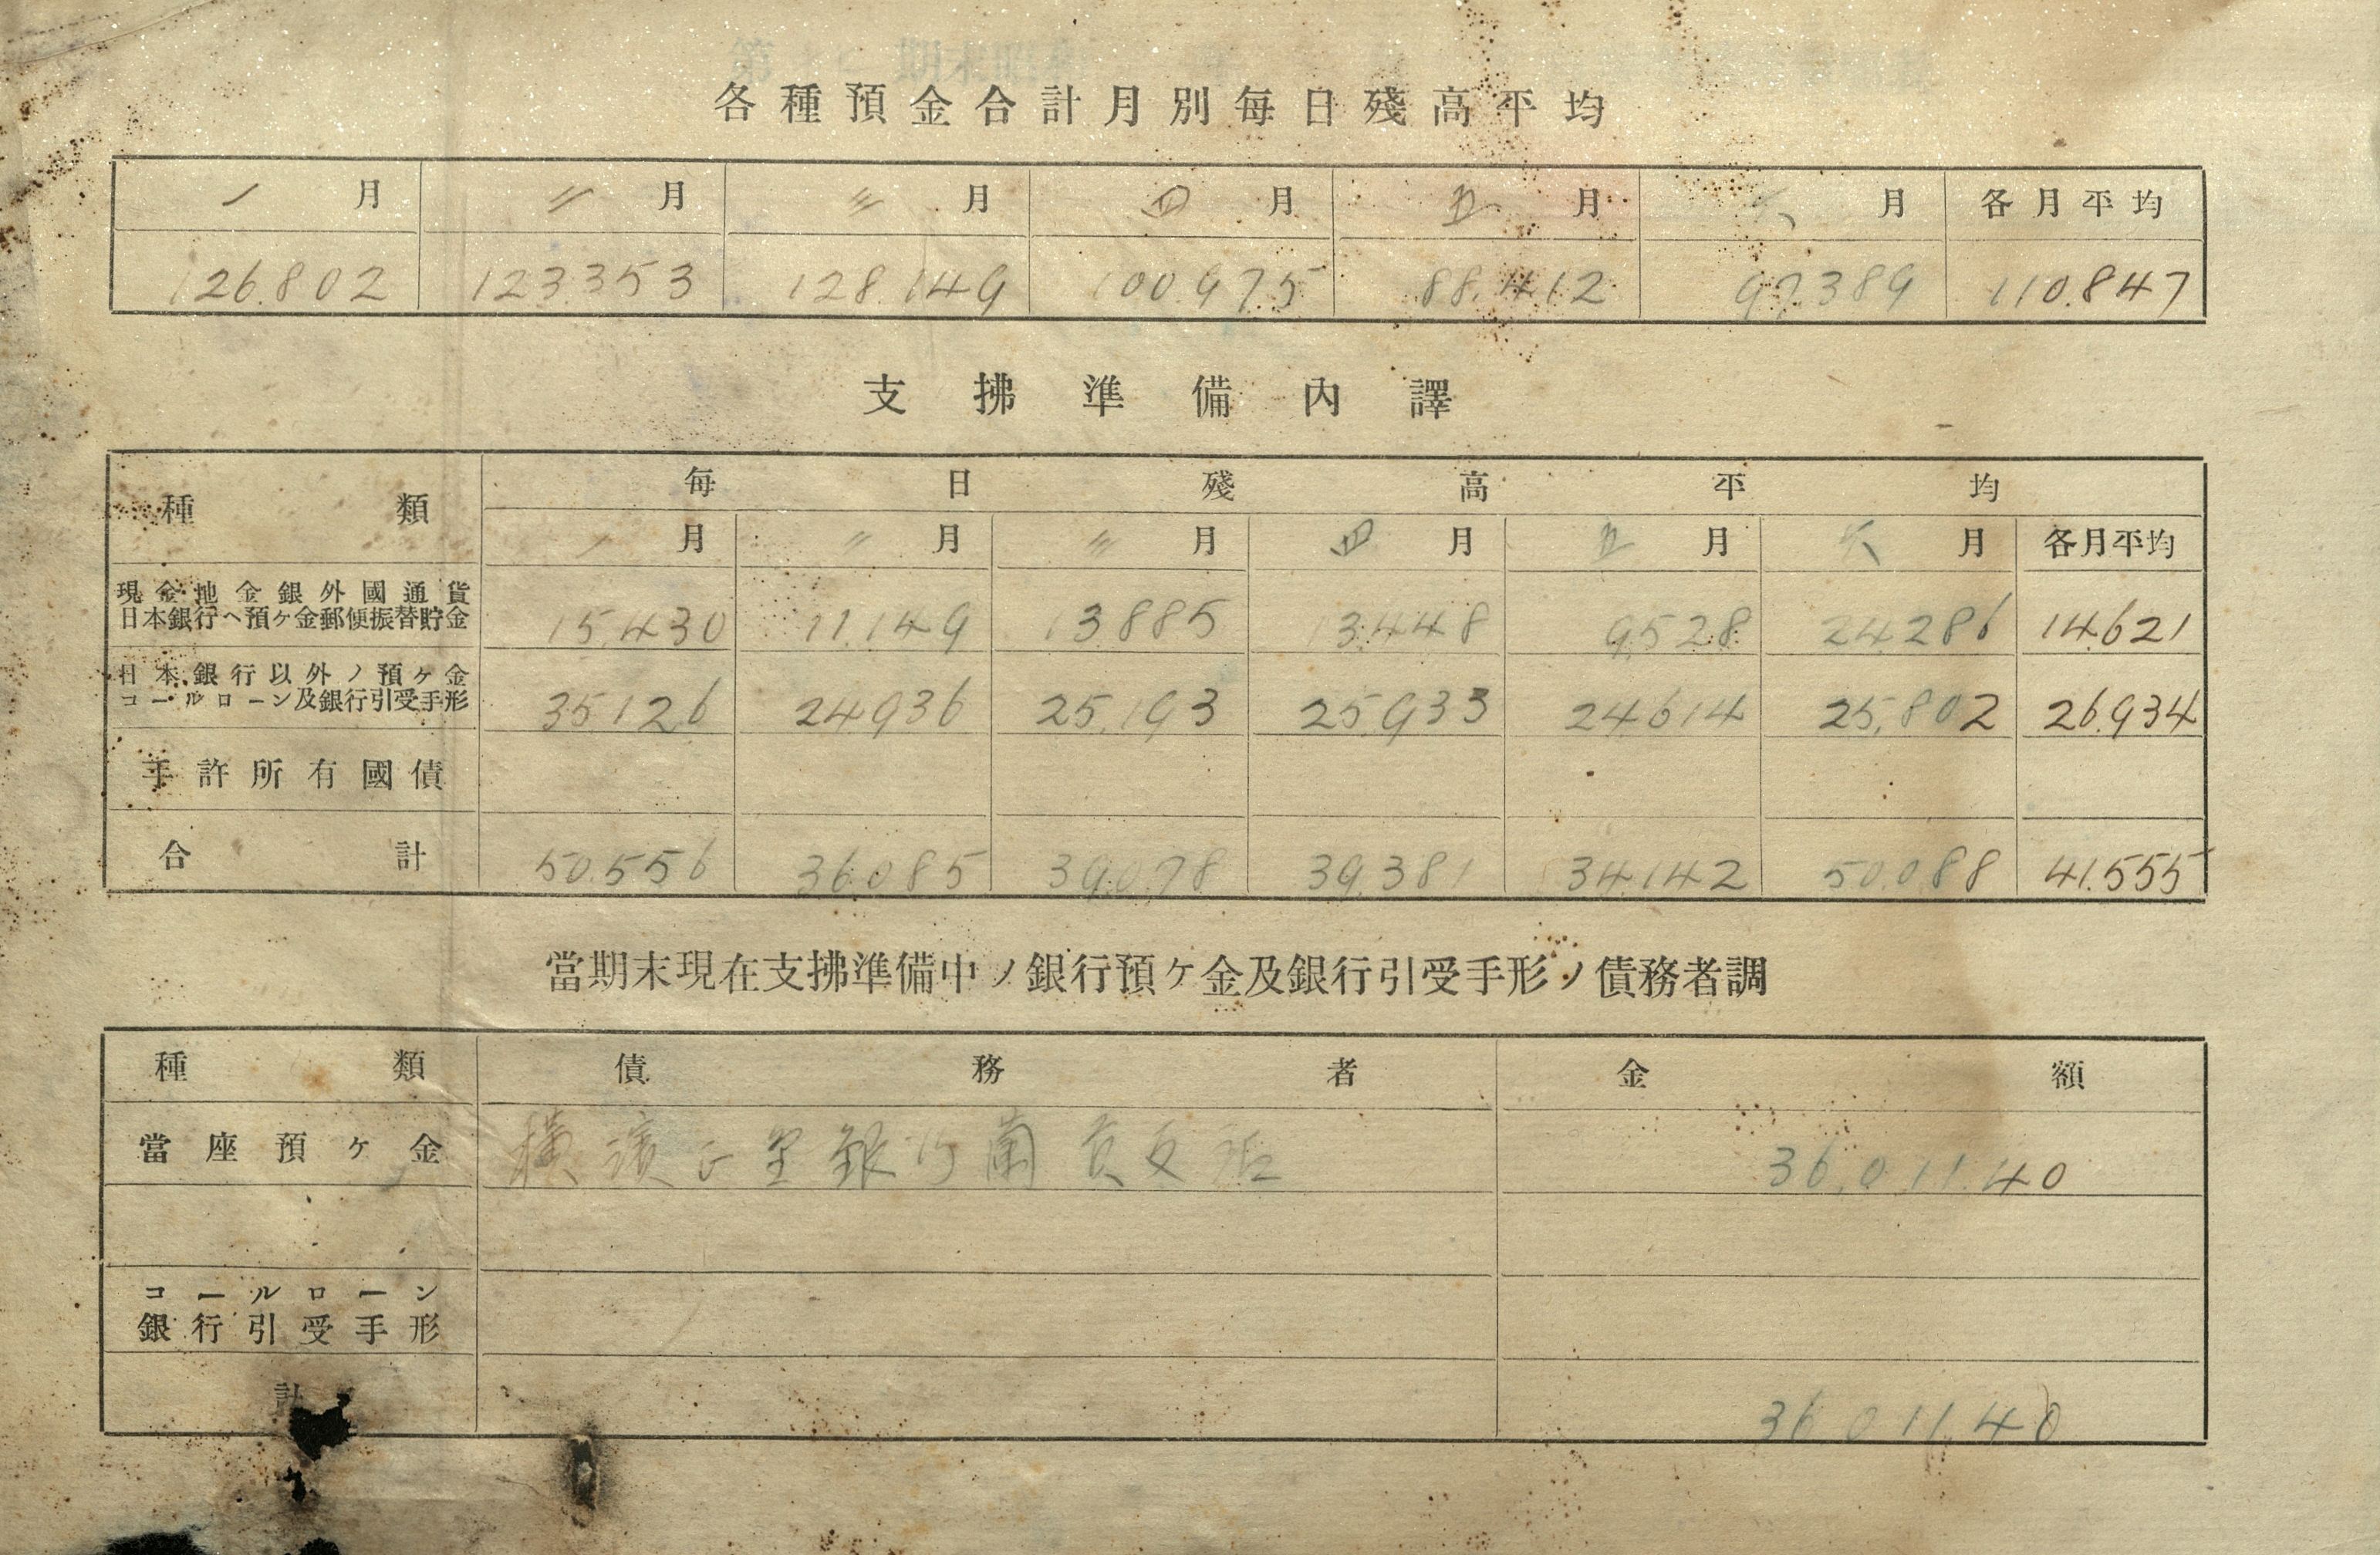 各種預金合計月別每日殘高平均
一月 二月 三月 四月 五月 六月 各月平均
126.802 123.353 128.149 100.975 88.412 97.389 110.847
支拂準備內譯
種類 每日殘高平均
一月 二月 三月 四月 五月 六月 各月平均
現金地金銀外國通貨
日本銀行ヘ預ケ金郵便振替貯金 15.430 11.149 13.885 13.448 9.528 24.286 14.621
日本銀行以外ノ預ケ金
コールローン及銀行引受手形 35.126 24.936 25.193 25.933 24.614 25.802 26.934
手許所有國債
合計 50.556 36.085 39.078 39.381 34.142 50.088 41.555
當期末現在支拂準備中ノ銀行預ケ金及銀行引受手形ノ債務者調
種類 債務者 金額
當座預ケ金 橫濱正金銀行蘭貢支店 36.011.40
コールローン
銀行引受手形
計 36.011.40